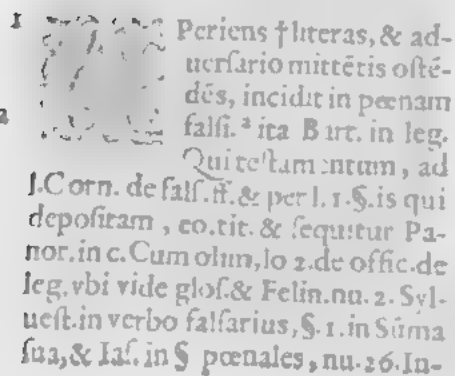 1
Periens †literas, & ad-
uerſario mittētis oſtē-
dēs, incidit in pœnam
falſi. ª ita Bart. in leg.
a
Qui teſtamentum, ad
l.Corn. de falſ. ff. & per l. 1. §. is qui
depoſitam, eo. tit. & ſequitur Pa-
nor. in c. Cum olim, lo 2. de offic. de
leg. vbi vide gloſ. & Felin. nu. 2. Syl-
ueſt. in verbo falſarius, §. 1. in Sūma
ſua, & Iaſ. in § pœnales, nu. 26. In-